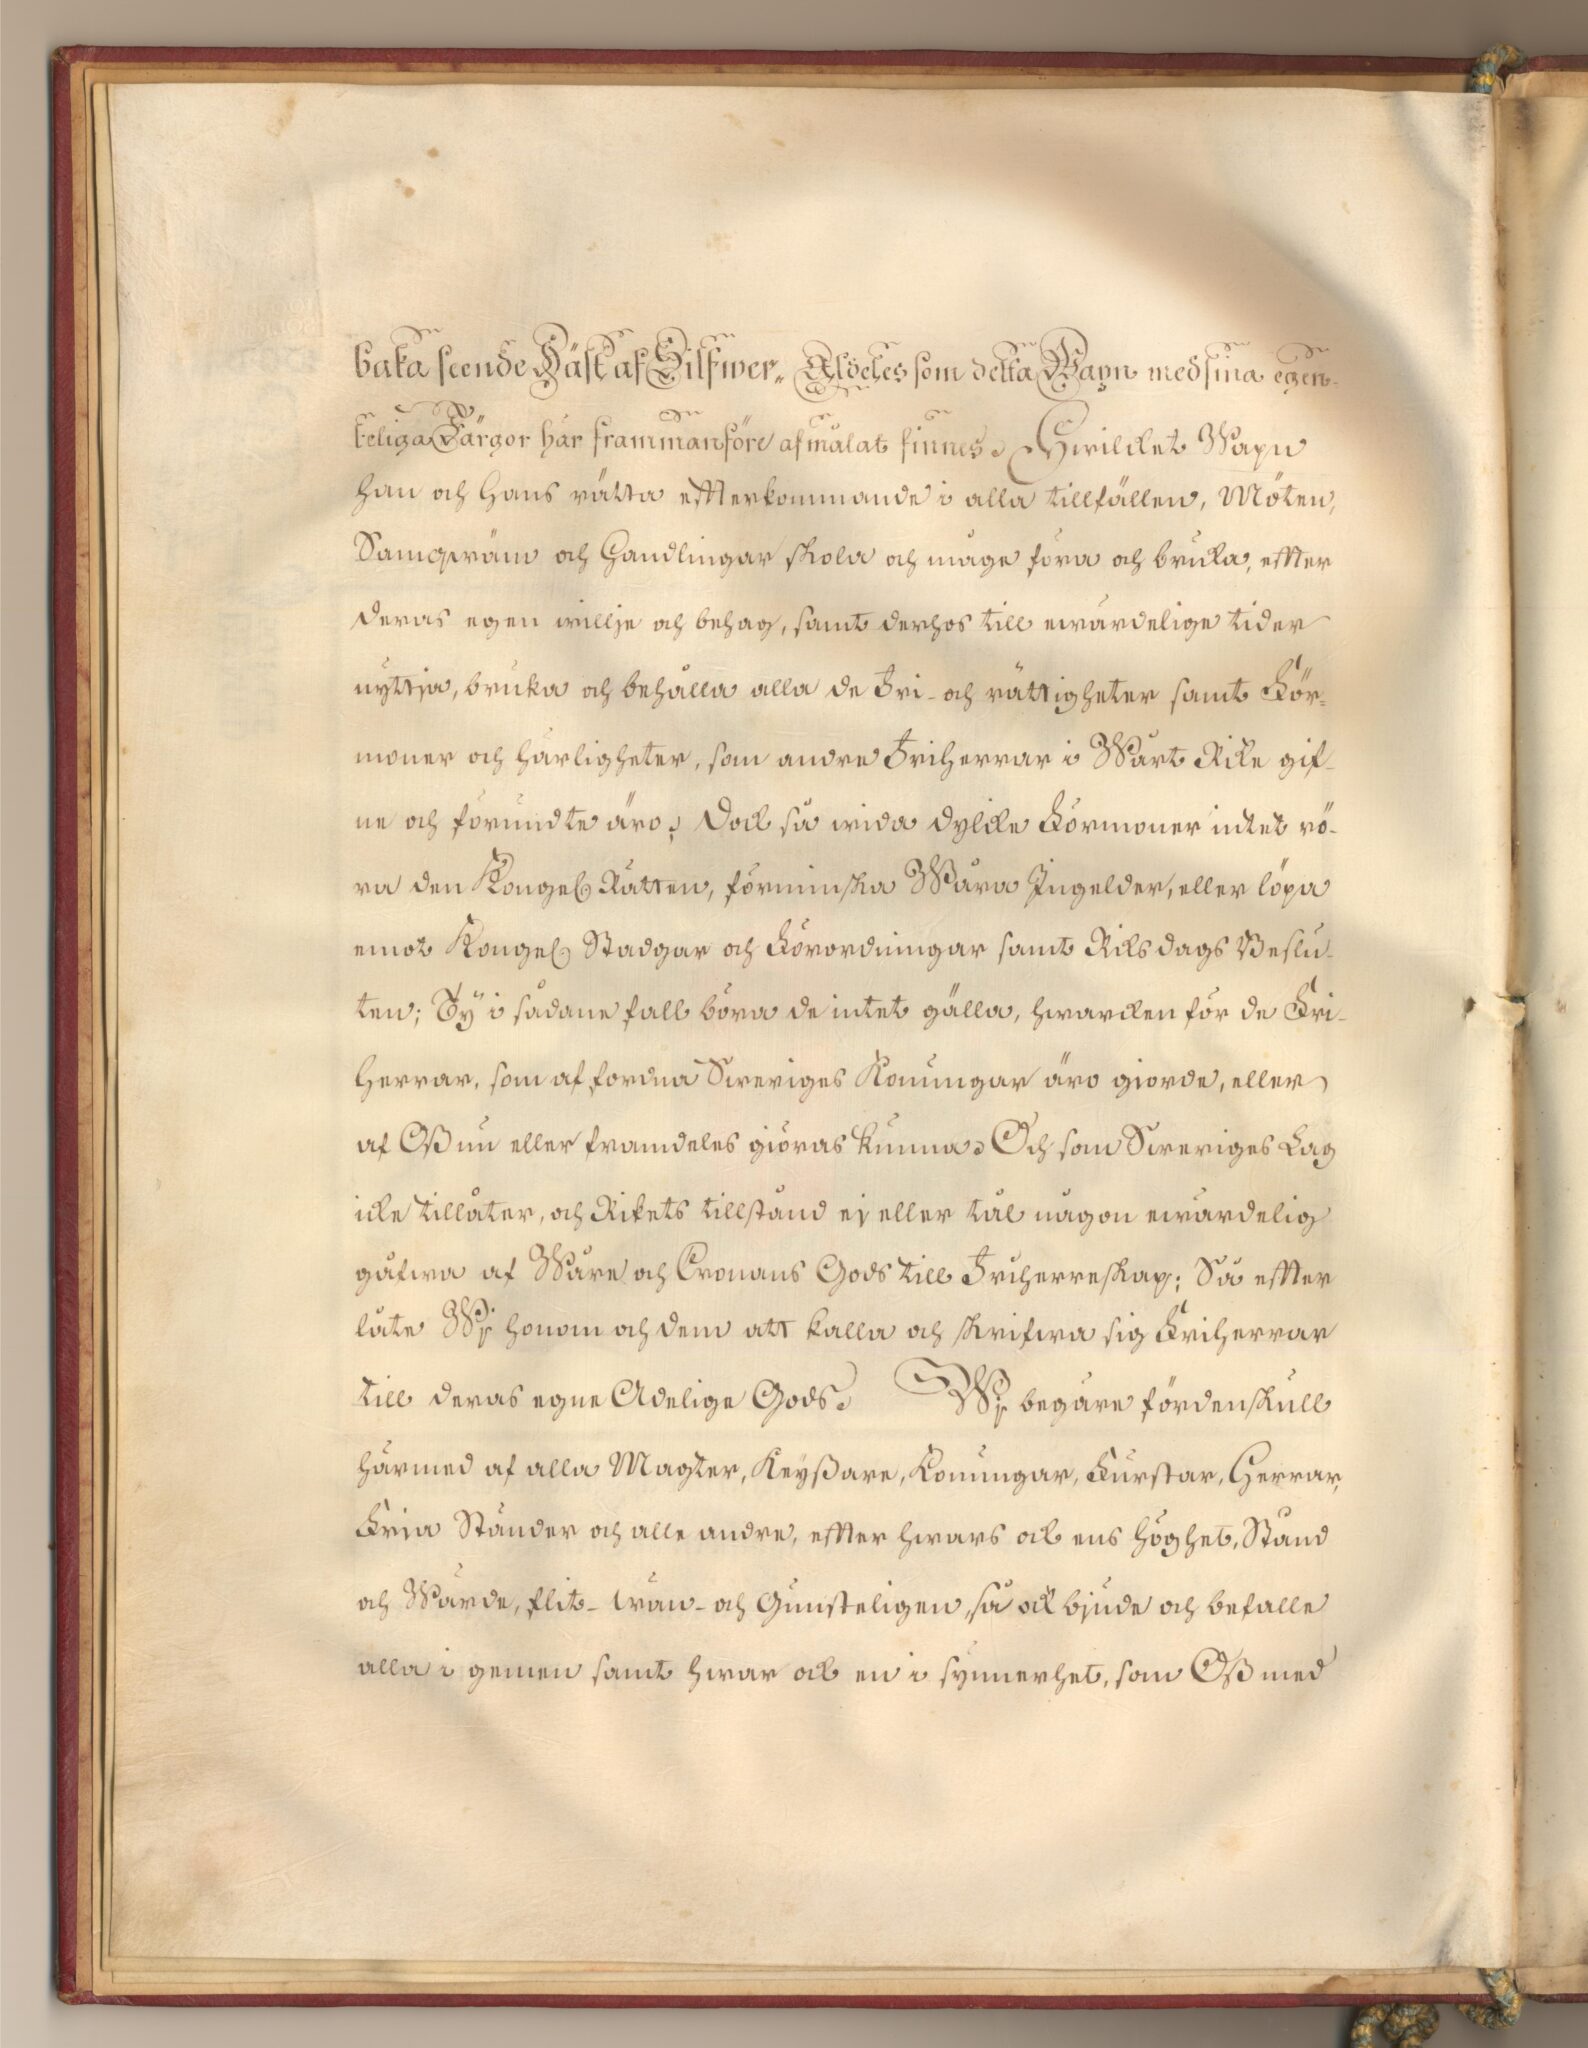 baka seende Häst af Silfwer. Aldeles som detta Wapn med sina egen-
teliga Färgor här frammanföre afmålat finnes. Hwilcket Wapn
han och Hans rätta effterkommande i alla tillfällen, Möten,
Samqwäm och Handlingar skola och måge föra och bruka, effter
deras egen willje och behag, samt derhos till ewärdelige tider
nyttja, bruka och behålla alla de Fri- och rättigheter samt För-
moner och härligheter, som andre Friherrar i Wårt Rike gif-
ne och förundte äro; Dock så wida dylike Förmoner intet rö-
ra den Kongel. Rätten, förminska Wåra Ingelder, eller löpa
emot Kongel. Stadgar och Förordningar samt Riksdags Beslu-
ten; Ty i sådane fall böra de intet gälla, hwarcken för de Fri-
Herrar, som af fordna Sweriges Konungar äro giorde, eller
af Oß nu eller framdeles giöras kunna. Och som Sweriges Lag
icke tillåter, och Rikets tillstånd ej eller tål någon ewärdelig
gåfwa af Wåre och Cronans Gods till Friherreskap; Så effter
låte Wj honom och dem att kalla och skrifwa sig Friherrar
till deras egne Adelige Gods. Wj begäre fördenskull
härmed af alla Magter, Keyßare, Konungar, Furstar, Herrar,
Frija Ständer och alle andre, effter hwars ock ens höghet, Stånd
och Wärde, flit- wän- och Gunsteligen, så ock bjude och befalle
alla i gemen samt hwar ock en i synnerhet, som Oß med